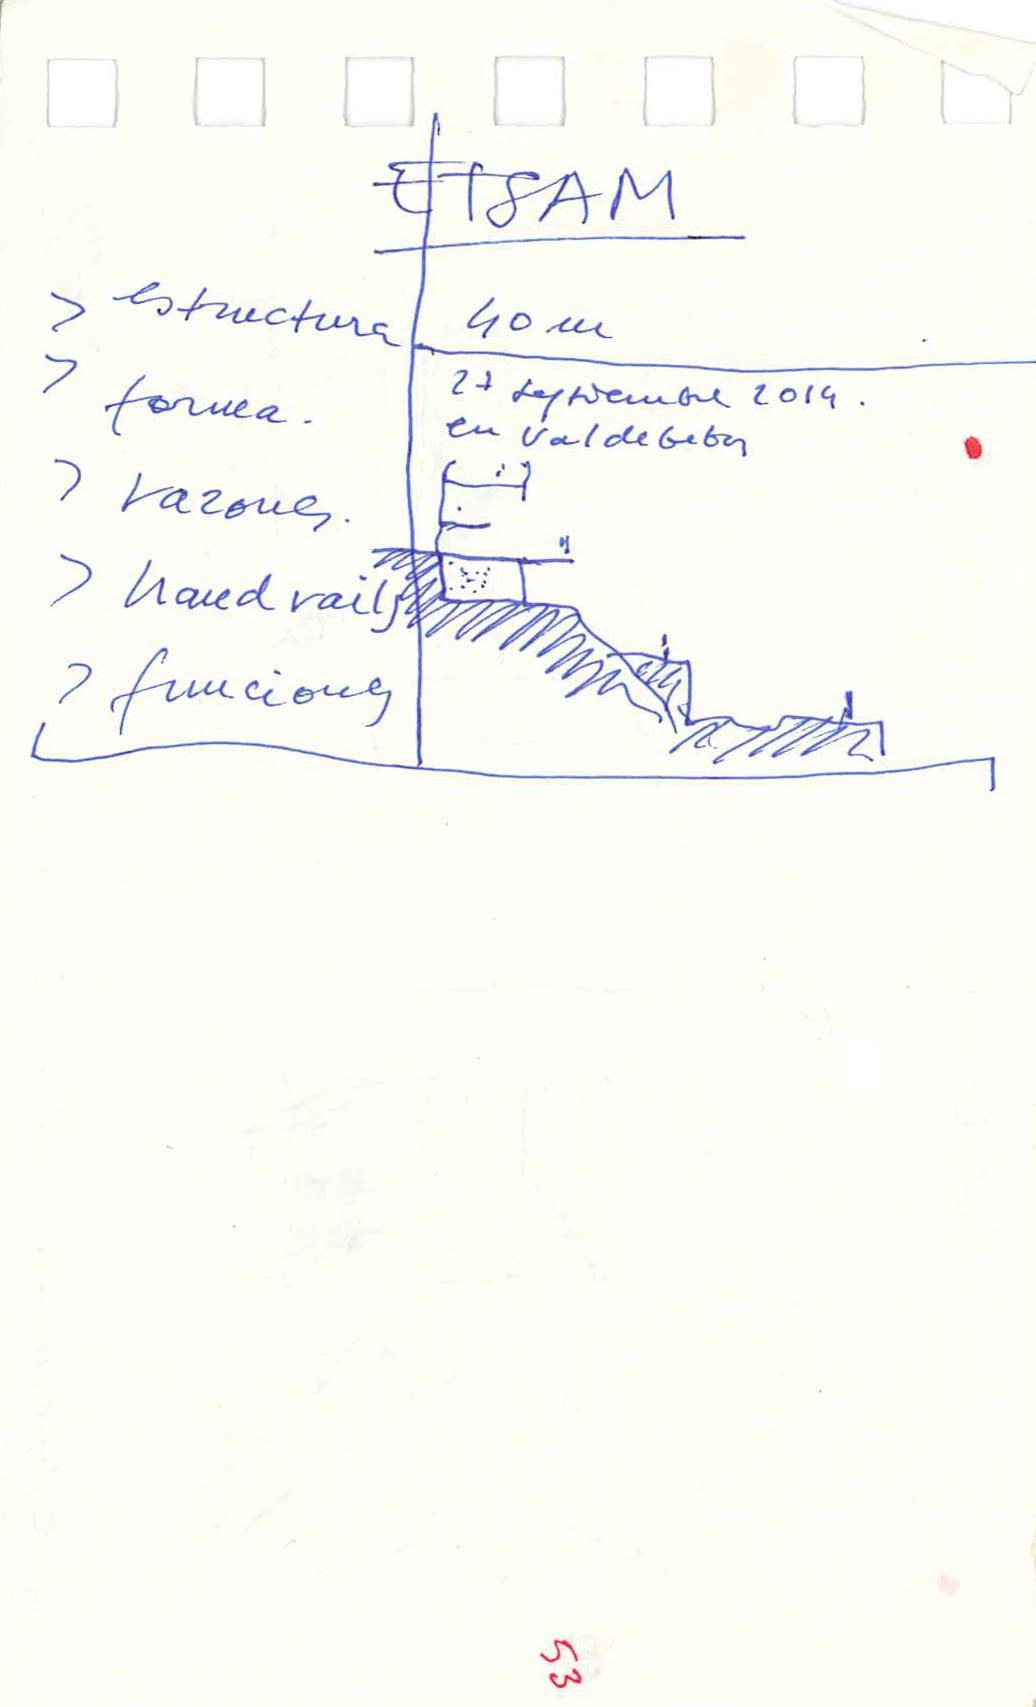 ETSAM
> estructura
> forma.
> razones.
> handrails
> funciones
40 m
27 septiembre 2014.
en Valdebebas
53